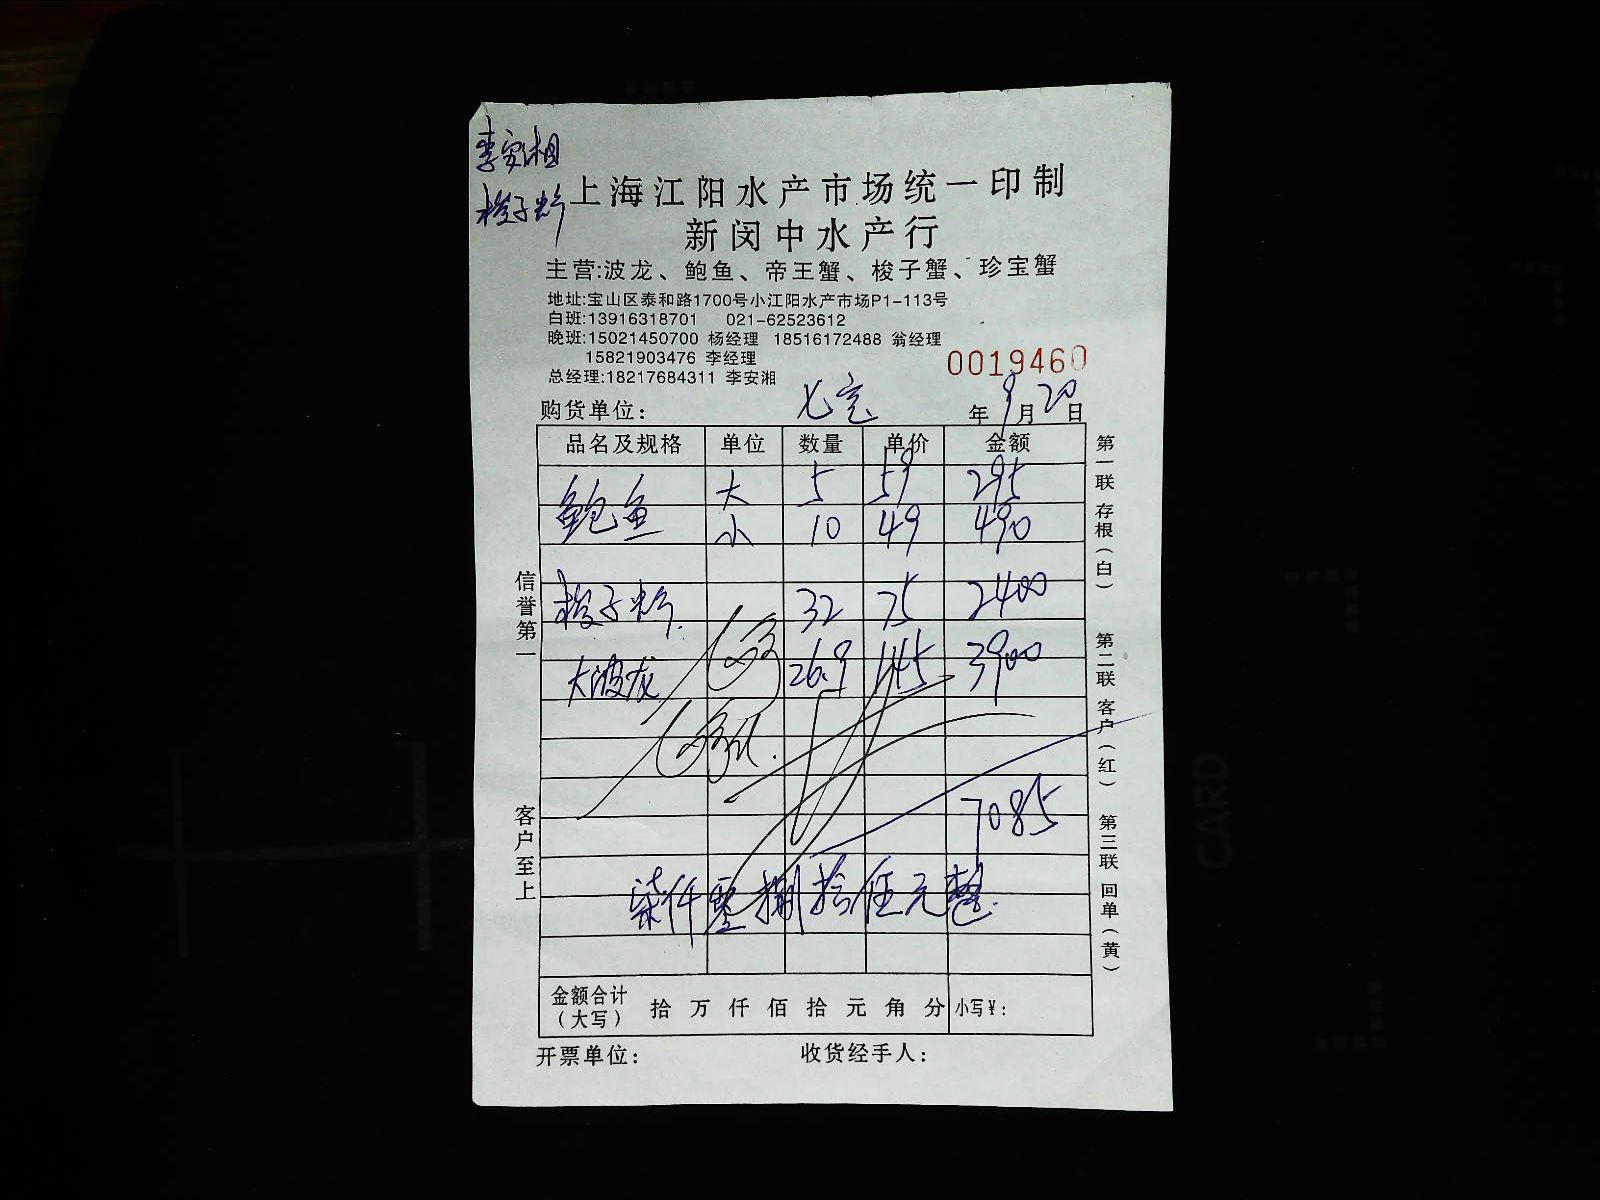 李安湘
梭子蟹
上海江阳水产市场统一印制
新闵中水产行
主营:波龙、鲍鱼、帝王蟹、梭子蟹、珍宝蟹
地址:宝山区泰和路1700号小江阳水产市场P1-113号
白班:13916318701 021-62523612
晚班:15021450700 杨经理 18516172488 翁经理
15821903476 李经理
总经理:18217684311 李安湘
0019460
购货单位: 七宝 年 9 月 20 日
品名及规格 单位 数量 单价 金额
鲍鱼 大 5 59 295
小 10 49 490
梭子蟹 32 75 2400
大波龙 26.9 145 3900
7085
柒仟零捌拾伍元整
金额合计(大写) 拾 万 仟 佰 拾 元 角 分 小写¥:
开票单位: 收货经手人:
信誉第一
客户至上
第一联 存根(白)
第二联 客户(红)
第三联 回单(黄)
CARD